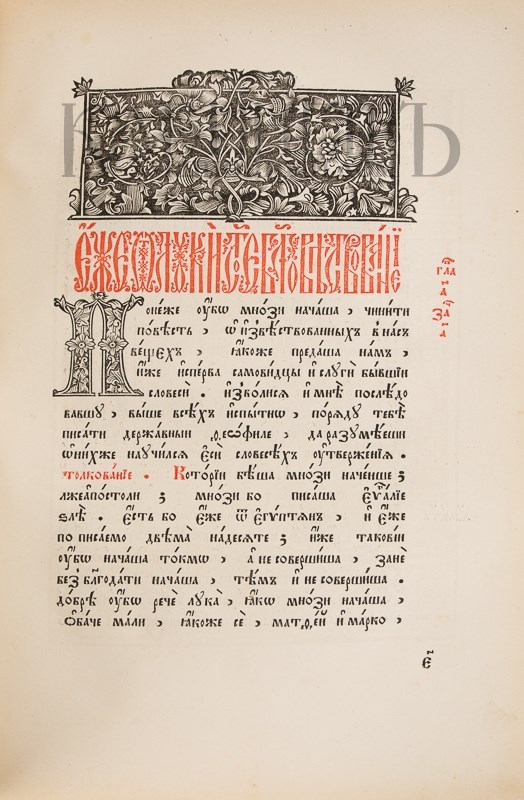 Е҆́же ѿ лꙋки̑ ст҃о́е бл҃говѣствова́нїе
гла
а҃
За҃
а҃
Поне́же ᲂу҆́бѡ мно́зи нача́ша , чини́ти
по́вѣсть , ѡ҆ и҆звѣ́ствованныхъ в на́съ
ве́щехъ , ꙗ҆́коже предаша на́мъ ,
и҆́же и҆спе́рва самови́дцы и҆ слꙋги̑ бы́вшїи
словесѝ . и҆зво́лисѧ и҆ мнѣ̀ послѣ́до
вавшꙋ , вы́ше всѣ́хъ и҆спы́тнѡ , по́рѧдꙋ тебѣ̀
писа́ти держа́вныи ѳ҆ео́филе , да разꙋмѣ́еши
ѡ҆ ни́хже наꙋчи́лсѧ є҆сѝ словесе́хъ ᲂу҆твержє́нїѧ .
толкова́нїе . Кото́рїи бѣ́ша мно́зи наче́нше ;
лжеа҆по́столи ; мно́зи бо писа́ша є҆ѵⷢ҇а́лїе
ѕлѣ̀ . є҆́сть бо є҆́же ѿ є҆гѵ́птѧнъ , и҆ є҆́же
по пи́саемо двѣма̀ на́десѧте ; и҆́же такові́и
ᲂу҆́бѡ нача́ша то́кмѡ , а҆ не соверши́ша , занѐ
без̾ бл҃года́ти нача́ша , тѣ́мъ и҆ не соверши́ша .
до́брѣ ᲂу҆́бѡ речѐ лꙋка̀ , ꙗ҆́кѡ мно́зи нача́ша ,
Ѻ҆ба́че ма́ли , ꙗ҆́коже сѐ , матѳе́й и҆ ма́рко ,
є҃